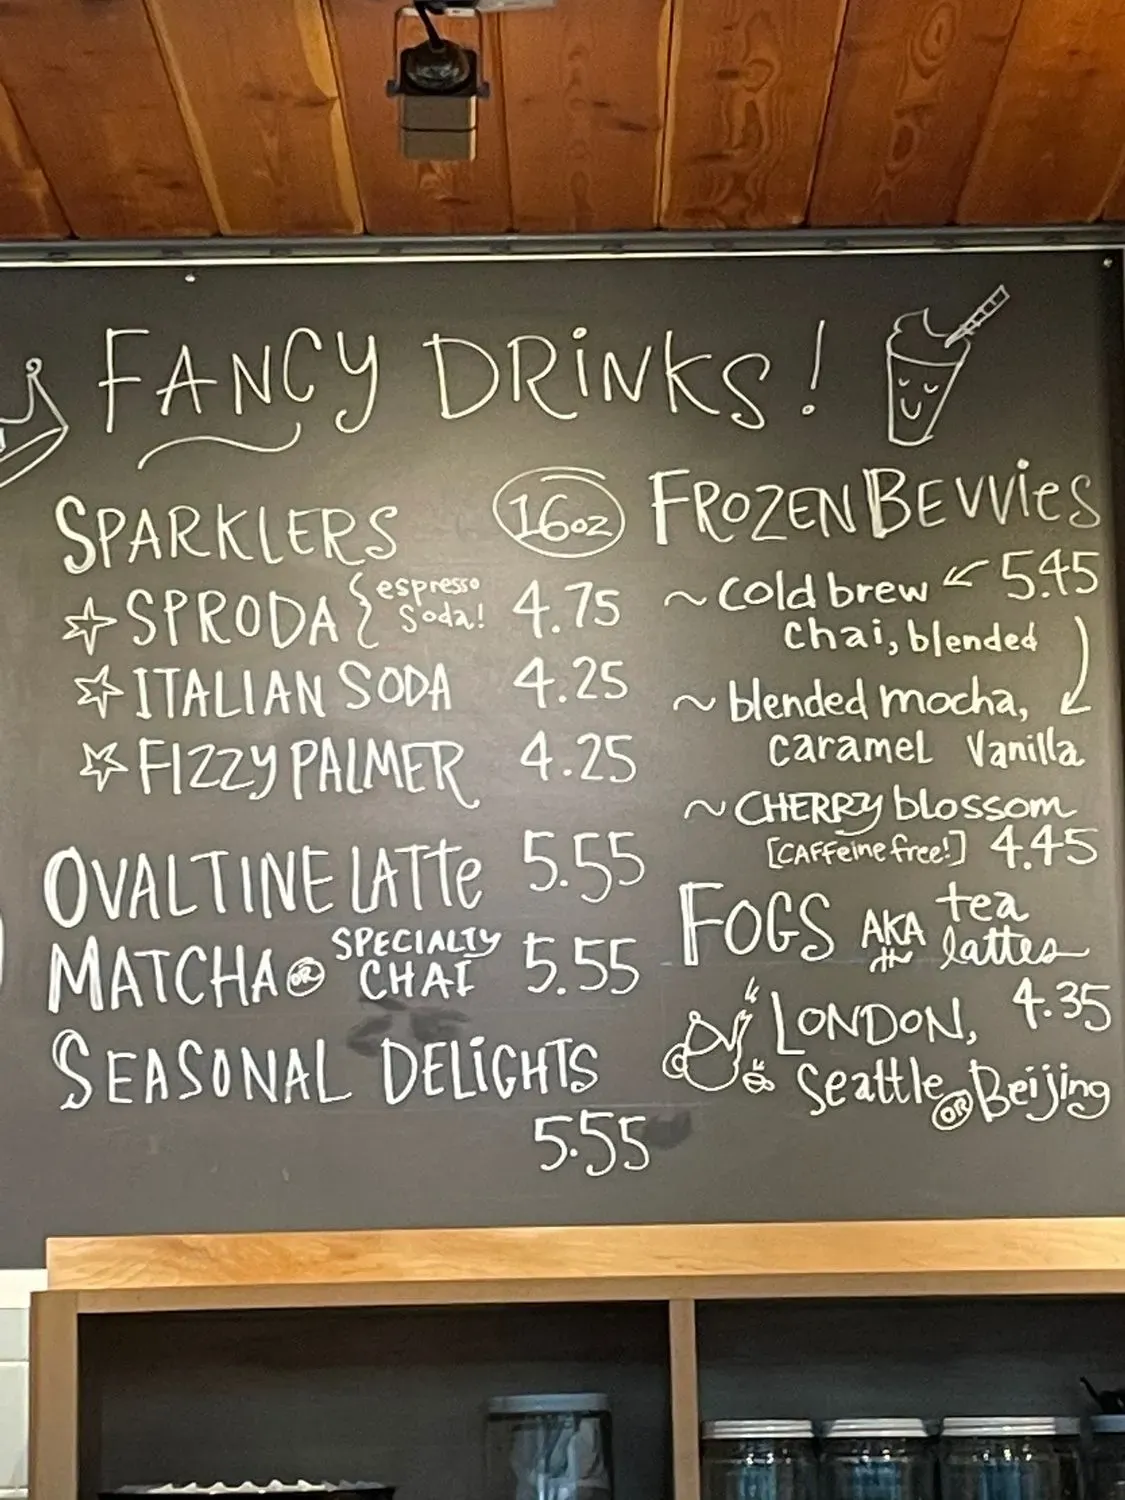 FANCY DRINKS!
SPARKLERS 16oz
SPRODA { espresso soda! 4.75
ITALIAN SODA 4.25
FIZZY PALMER 4.25
OVALTINE LATTE 5.55
MATCHA OR SPECIALTY CHAI 5.55
SEASONAL DELIGHTS
5.55
FROZEN BEVVIES
~ cold brew ← 5.45
chai, blended
~ blended mocha,
caramel vanilla
~ CHERRY blossom
[CAFFeine free!] 4.45
FOGS AKA tea
lattes
LONDON, 4.35
Seattle OR Beijing